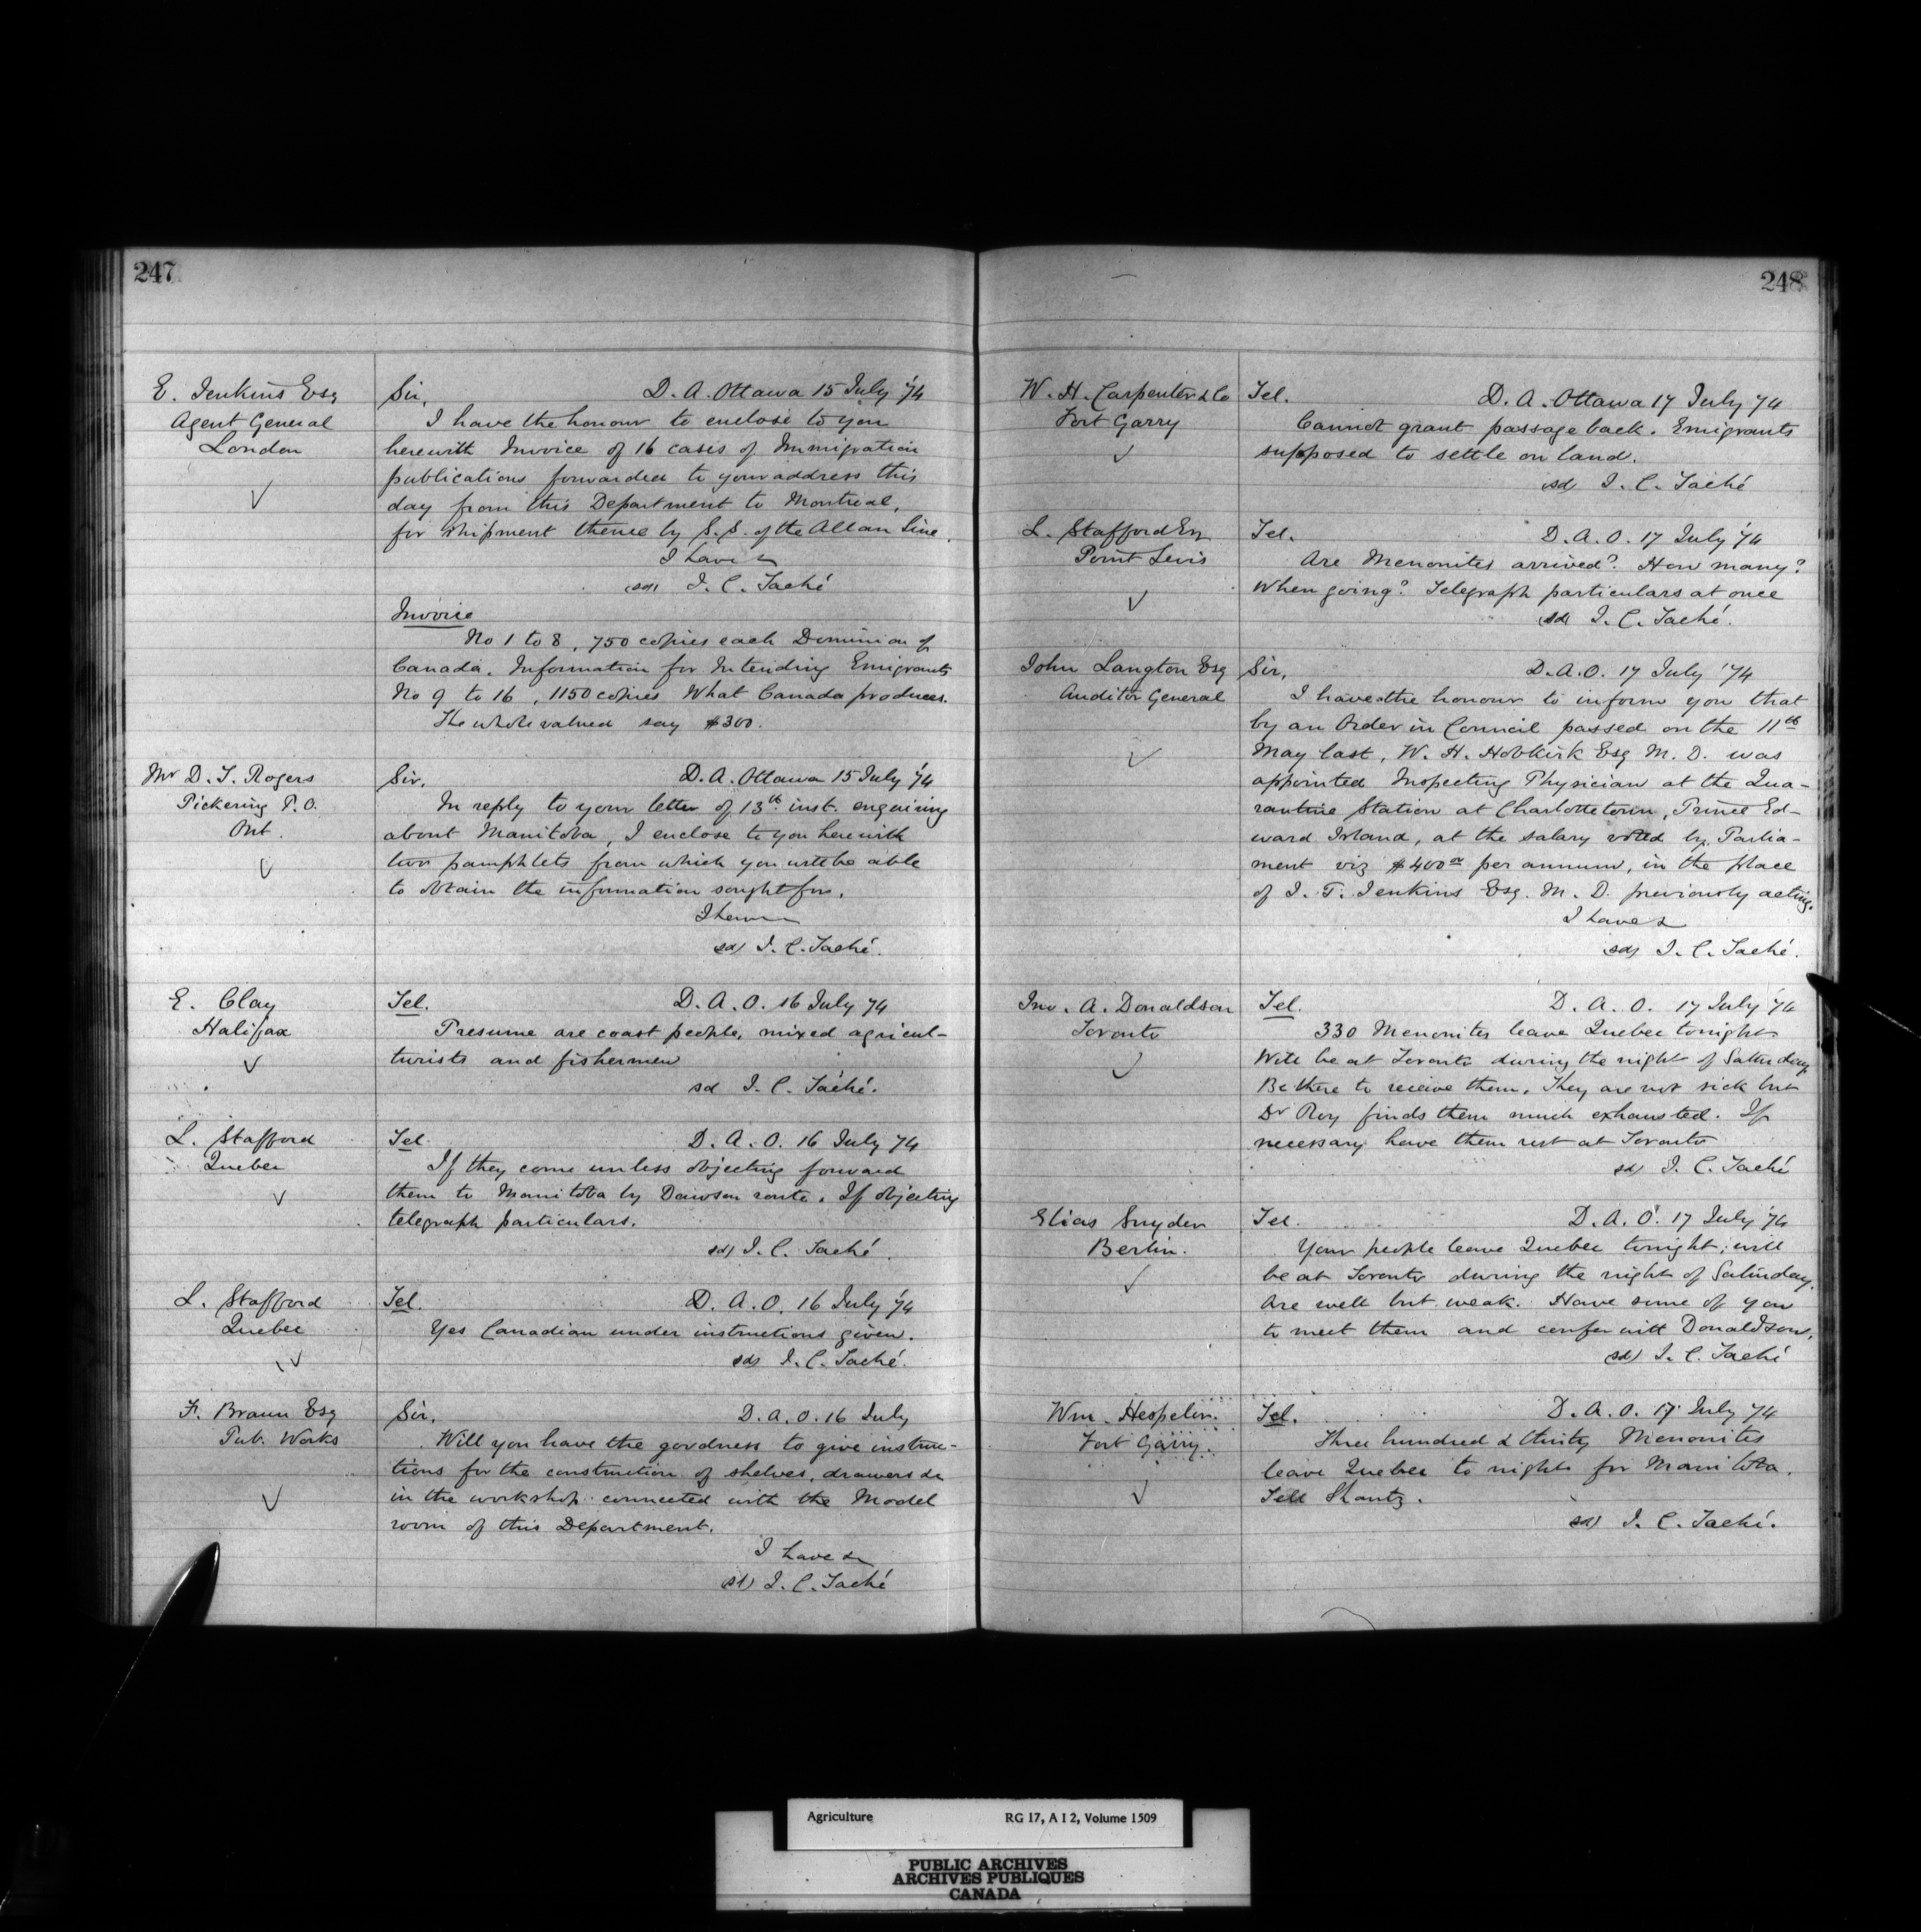 247
E. Jenkins Esq
Agent General
London
Sir, D. A. Ottawa 15 July '74
I have the honour to enclose to you
herewith Invoice of 16 cases of Immigration
publications forwarded to your address this
day from this Department to Montreal,
for shipment thence by S.S. of the Allan Line.
I have &
(sd) J. C. Taché
Invoice
No 1 to 8, 750 copies each Dominion of
Canada. Information for Intending Emigrants
No 9 to 16, 1150 copies What Canada produces.
The whole valued say $300.
Mr D. T. Rogers
Pickering P. O.
Ont.
Sir, D. A. Ottawa 15 July '74
In reply to your letter of 13th inst. enquiring
about Manitoba, I enclose to you herewith
two pamphlets from which you will be able
to obtain the information sought for.
I have
sd) J. C. Taché.
E. Clay
Halifax
Tel. D. A. O. 16 July 74
Presume are coast people, mixed agricul-
turists and fishermen
sd J. C. Taché.
L. Stafford
Quebec
Tel. D. A. O. 16 July 74
If they come unless objecting forward
them to Manitoba by Dawson route. If objecting
telegraph particulars.
sd) J. C. Taché.
L. Stafford
Quebec
Tel. D. A. O. 16 July '74
Yes Canadian under instructions given.
sd) J. C. Taché.
F. Braun Esq
Pub. Works
Sir, D. A. O. 16 July
Will you have the goodness to give instruc-
tions for the construction of shelves, drawers &c
in the workshop connected with the Model
room of this Department.
I have &
sd) J. C. Taché
248
W. H. Carpenter & Co
Fort Garry
Tel. D. A. Ottawa 17 July 74
Cannot grant passage back. Emigrants
supposed to settle on land.
sd) J. C. Taché
L. Stafford Esq
Point Levis
Tel. D. A. O. 17 July '74
Are Menonites arrived? How many?
When going? Telegraph particulars at once
sd) J. C. Taché.
John Langton Esq
Auditor General
Sir, D. A. O. 17 July '74
I have the honour to inform you that
by an Order in Council passed on the 11th
May last, W. H. Hobkirk Esq M. D. was
appointed Inspecting Physician at the Qua-
rantine Station at Charlottetown, Prince Ed-
ward Island, at the salary voted by Parlia-
ment viz $400 per annum, in the place
of J. T. Jenkins Esq. M. D. previously acting.
I have &
sd) J. C. Taché.
Jno. A. Donaldson
Toronto
Tel. D. A. O. 17 July '74
330 Menonites leave Quebec tonight.
Will be at Toronto during the night of Saturday.
Be there to receive them. They are not sick but
Dr Roy finds them much exhausted. If
necessary have them rest at Toronto
sd) J. C. Taché
Elias Snyder
Berlin.
Tel. D. A. O. 17 July '74
Your people leave Quebec tonight; will
be at Toronto during the night of Saturday.
Are well but weak. Have some of you
to meet them and confer with Donaldson.
sd) J. C. Taché
Wm. Hespeler.
Fort Garry.
Tel. D. A. O. 17 July 74
Three hundred & thirty Menonites
leave Quebec to night for Manitoba.
Tell Shantz.
sd) J. C. Taché.
Agriculture RG 17, A I 2, Volume 1509
PUBLIC ARCHIVES
ARCHIVES PUBLIQUES
CANADA